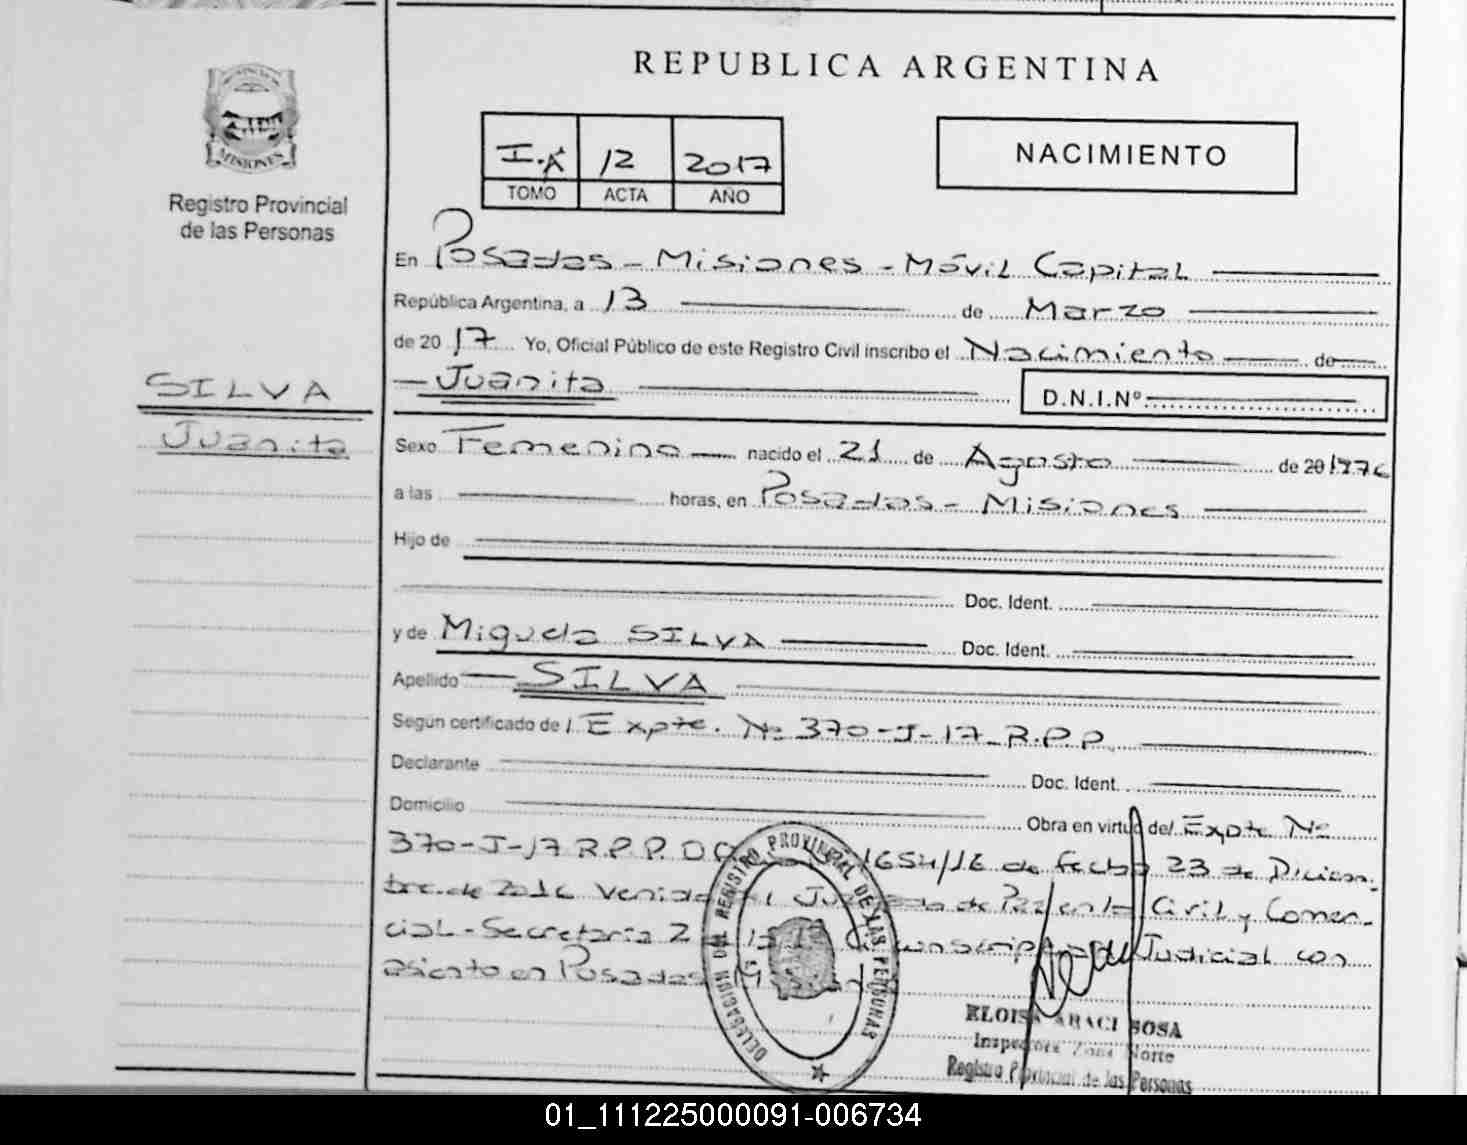 REPUBLICA ARGENTINA
MISIONES
Registro Provincial
de las Personas
I.A 12 2017
TOMO ACTA AÑO
NACIMIENTO
En Posadas - Misiones - Móvil Capital
República Argentina, a 13 de Marzo
de 2017 Yo, Oficial Público de este Registro Civil inscribo el Nacimiento de
Juanita D.N.I.Nº
SILVA
Juanita
Sexo Femenino nacido el 21 de Agosto de 20
a las horas, en Posadas - Misiones
Hijo de
Doc. Ident.
y de Miguela SILVA Doc. Ident.
Apellido SILVA
Según certificado de Expte. Nº 370-I-17-R.P.P.
Declarante Doc. Ident.
Domicilio Obra en virtud de Expte Nº
370-I-17 R.P.P. 1654/16 de fecha 23 de Diciem-
bre de 2016 Juzgado de Paz en lo Civil y Comer-
cial - Secretaria 2 Judicial con
asiento en Posadas
DELEGACION DEL REGISTRO PROVINCIAL DE LAS PERSONAS
ELOISA ARACI SOSA
Inspectora Zona Norte
Registro Provincial de las Personas
01_111225000091-006734